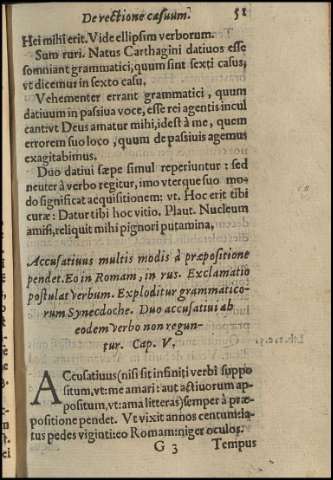 De rectione casuum. 51
Hei mihi erit. Vide ellipsim verborum.
Sum ruri. Natus Carthagini datiuos esse
somniant grammatici, quum sint sexti casus,
vt dicemus in sexto casu.
Vehementer errant grammatici, quum
datiuum in passiua voce, esse rei agentis incul
cant: vt Deus amatur mihi, id est à me, quem
errorem suo loco, quum de passiuis agemus
exagitabimus.
Duo datiui sæpe simul reperiuntur: sed
neuter à verbo regitur, imo vterque suo mo-
do significat acquisitionem: vt. Hoc erit tibi
curæ: Datur tibi hoc vitio. Plaut. Nucleum
amisi, reliquit mihi pignori putamina,
Accusatiuus multis modis à præpositione
pendet. Eo in Romam, in rus. Exclamatio
postulat verbum. Exploditur grammatico-
rum Synecdoche. Duo accusatiui ab
eodem verbo non regun-
tur. Cap. V.
ACcusatiuus (nisi sit infiniti verbi suppo
situm, vt: me amari: aut actiuorum ap-
positum, vt: ama litteras) semper à præ-
positione pendet. Vt vixit annos centum: la-
tus pedes viginti: eo Romam: niger oculos.
G 3 Tempus